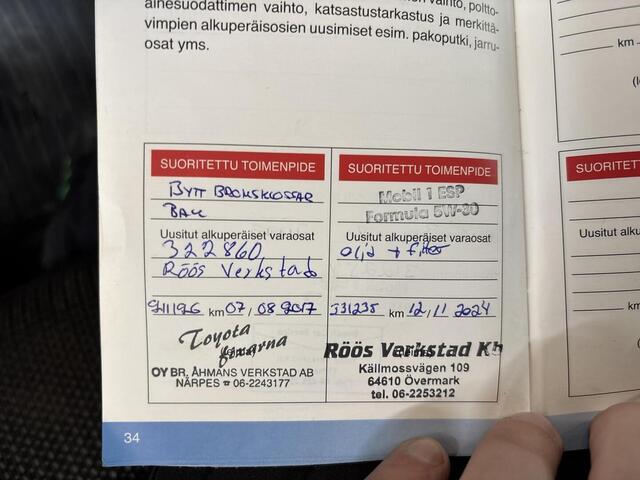 aihesuodattimen vaihto, poltto-
ainesuodattimen vaihto, katsastustarkastus ja merkittä-
vimpien alkuperäisosien uusimiset esim. pakoputki, jarru-
osat yms.
km
SUORITETTU TOIMENPIDE
BYTT BROMSKLOSSAR
BAK
Uusitut alkuperäiset varaosat
322860
Röös Verkstad
km 07/08 2017
Toyota
OY BR. ÅHMANS VERKSTAD AB
NÄRPES ☎ 06-2243177
SUORITETTU TOIMENPIDE
Mobil 1 ESP
Formula 5W-30
Uusitut alkuperäiset varaosat
olja + filter
331235 km 12/11 2024
Röös Verkstad Kb
Källmossvägen 109
64610 Övermark
tel. 06-2253212
SUORITETTU
Uusitut alku
km
34